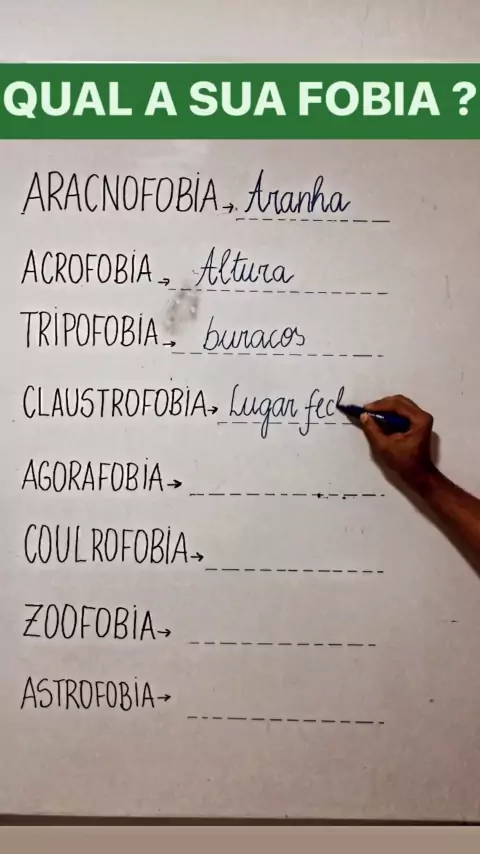 QUAL A SUA FOBIA ?
ARACNOFOBIA→ Aranha
ACROFOBIA→ Altura
TRIPOFOBIA→ buracos
CLAUSTROFOBIA→ Lugar fech
AGORAFOBIA→
COULROFOBIA→
ZOOFOBIA→
ASTROFOBIA→